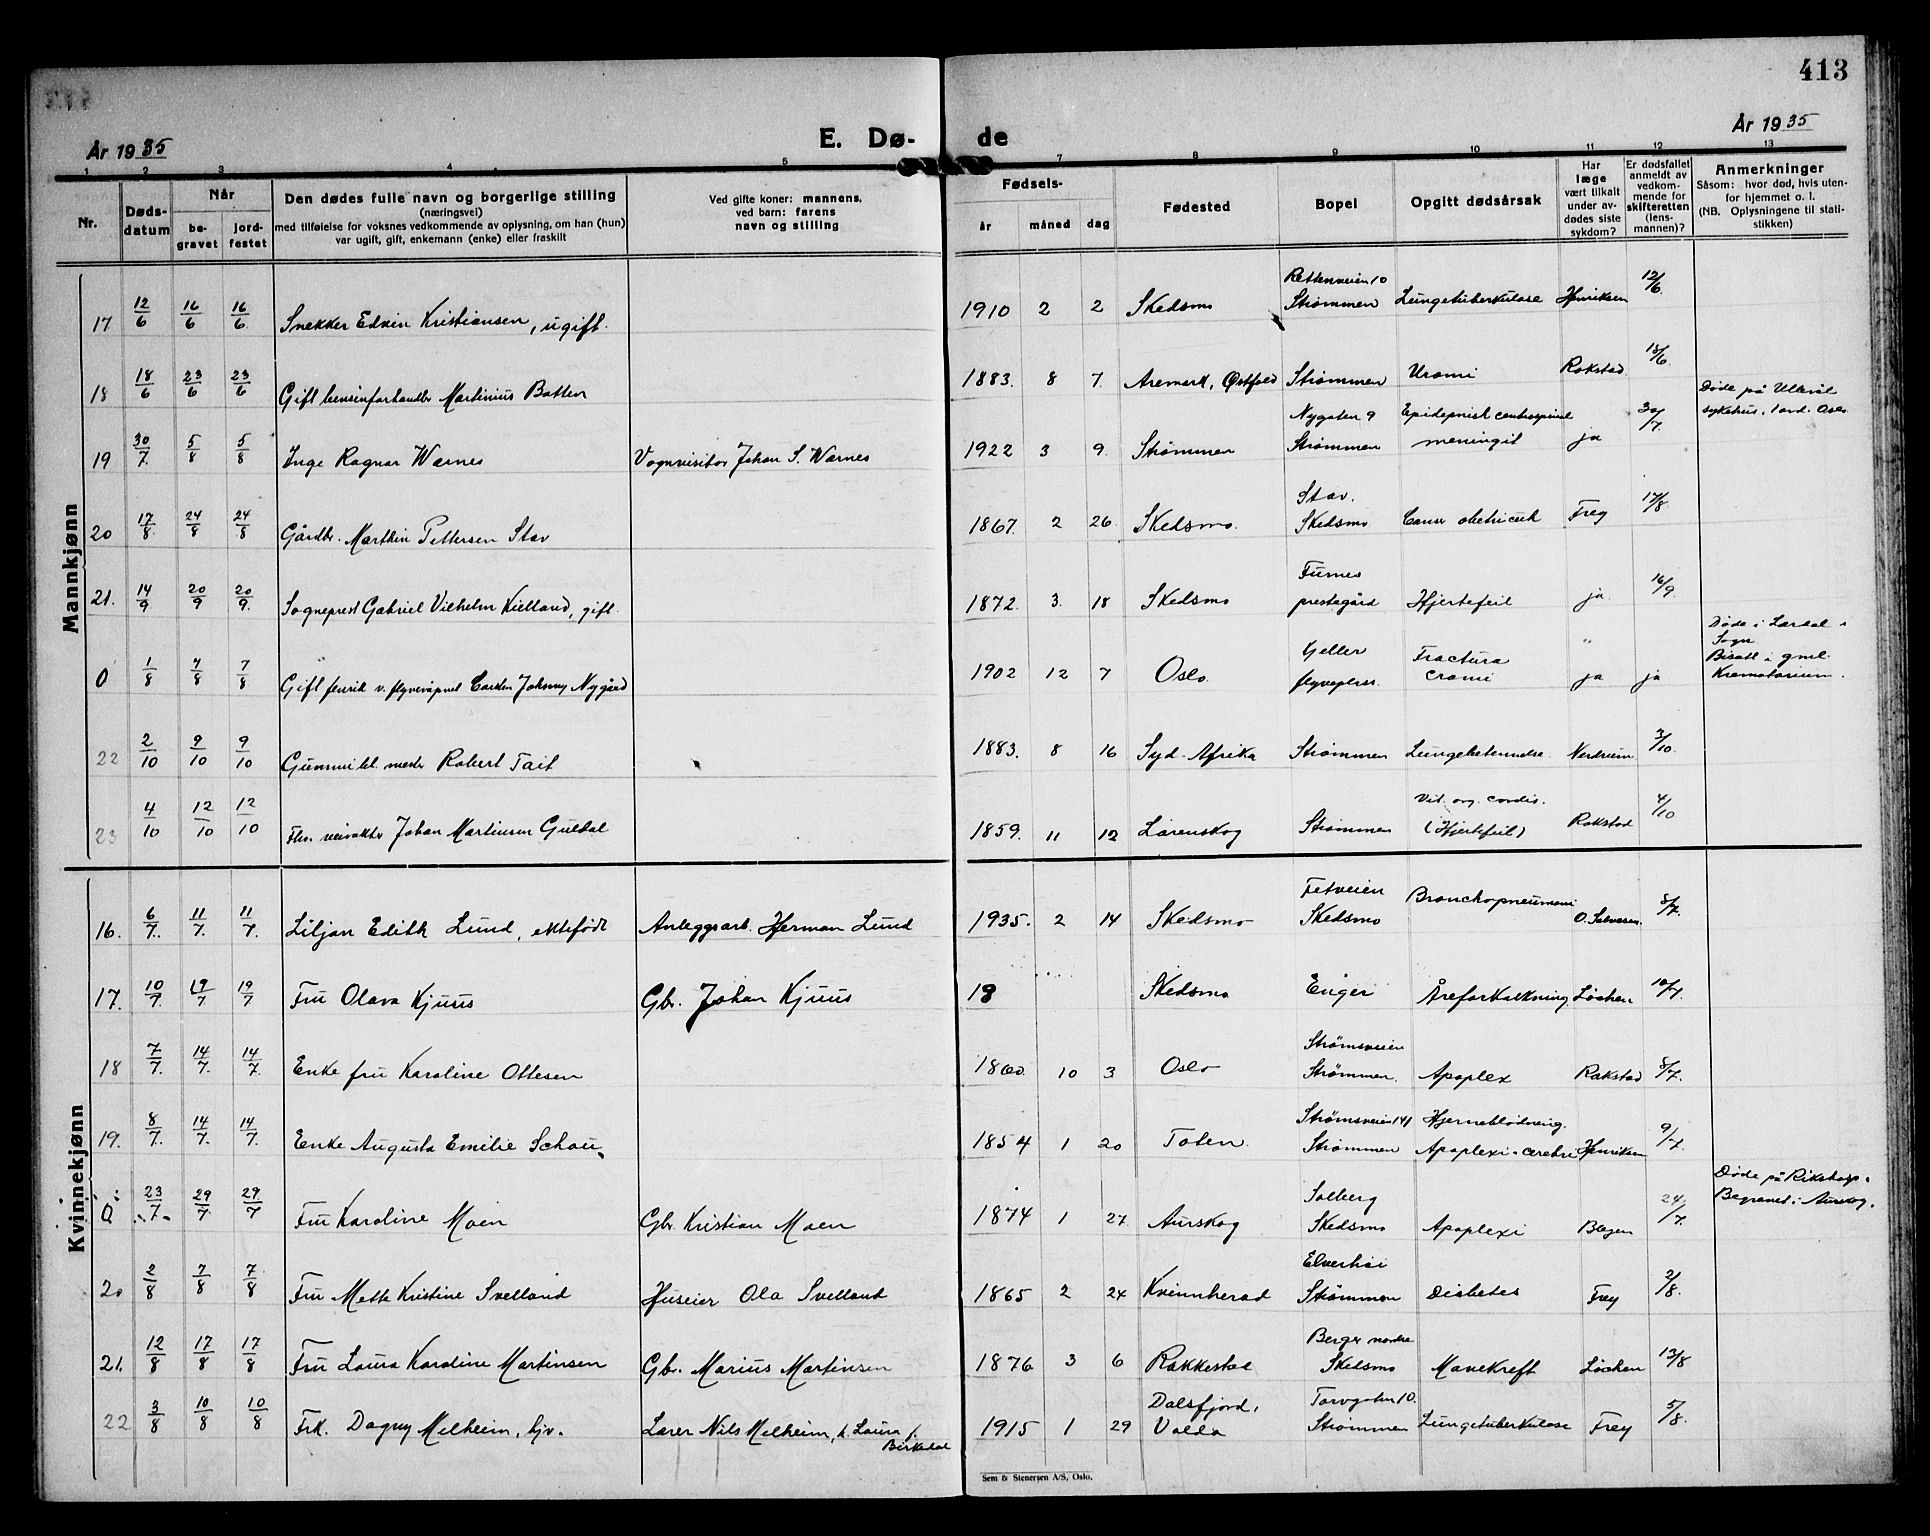 413
År 1935
E. Dø-
de
År 1935
1 2 3 4 5 7 8 9 10 11 12 13
Nr.
Døds-
datum
Når
be-
gravet
jord-
festet
Den dødes fulle navn og borgerlige stilling
(næringsvei)
med tilføielse for voksnes vedkommende av oplysning, om han (hun)
var ugift, gift, enkemann (enke) eller fraskilt
Ved gifte koner: mannens,
ved barn: farens
navn og stilling
Fødsels-
år måned dag
Fødested
Bopel
Opgitt dødsårsak
Har
læge
vært tilkalt
under av-
dødes siste
sykdom?
Er dødsfallet
anmeldt av
vedkom-
mende for
skifteretten
(lens-
mannen)?
Anmerkninger
Såsom: hvor død, hvis uten-
for hjemmet o. l.
(NB. Oplysningene til stati-
stikken)
Mannkjønn
17 12/6 16/6 16/6 Snekker Edvin Kristiansen, ugift. 1910 2 2 Skedsmo Rettenveien 10 Strømmen Lungetuberkulose Henriksen 12/6.
18 18/6 23/6 23/6 Gift bensinforhandler Martinius Batten 1883. 8 7. Aremark, Østfold Strømmen Uromi Rakstad 18/6.
Døde på Ullevål
sykehus, 1 avd. Oslo
19 30/7. 5/8 5/8 Inge Ragnar Warnes Vognvisitør Johan S. Warnes 1922 3 9. Strømmen Nygaten 9 Strømmen Epidemisk cerebrospinal meningit ja 30/7.
20 17/8 24/8 24/8 Gårdbr. Marthin Pettersen Stav 1867. 2 26 Skedsmo. Stav. Skedsmo Frey 17/8
21. 14/9 20/9 20/9. Sogneprest Gabriel Vilhelm Kielland, gift. 1872. 3. 18 Skedsmo Furnes prestegård Hjertefeil ja 16/9
Døde i Lærdal i
Sogn
Bisatt i gml.
Krematorium.
0 1/8 7/8 7/8 Gift fenrik v. flyvevåpnet Carsten Johnny Nygård 1902 12 7 Oslo. Kjeller flyveplass. Fractura cranii ja ja
22 2/10 9/10 9/10 Gummitekn. mester Robert Tait 1883. 8 16 Syd-Afrika Strømmen Lungebetennelse. Nerdrum 3/10.
23 4/10 12/10 12/10 Fhv. veivokter Johan Martinsen Guldal 1859. 11 12 Lørenskog Strømmen Vit. org. cordis. (Hjertefeil) Rakstad 4/10
Kvinnekjønn
16. 6/7. 11/7. 11/7. Liljan Edith Lund, ektefødt Anleggsarb. Herman Lund 1935. 2 14 Skedsmo Fetveien Skedsmo Bronchopneumoni O. Salvesen. 8/7.
17. 10/7. 19/7 19/7 Fru Olava Kjuus Gbr. Johan Kjuus 18 Skedsmo Enger Åreforkalkning Løchen 10/7.
18 7/7. 14/7. 14/7. Enke fru Karoline Ottesen 1860. 10 3 Oslo Strømsveien Strømmen. Apoplex Rakstad 8/7.
19. 8/7. 14/7. 14/7. Enke Augusta Emilie Schou. 1854 1 20 Toten. Strømsveien 141 Strømmen Hjerneblødning. Apoplexi cerebri Henriksen 9/7
0 23/7. 29/7 29/7 Fru Karoline Moen Gbr. Kristian Moen 1874 1 27 Aurskog Solberg Skedsmo Apoplexi 24/7.
Døde på Rikshosp.
Begravet i Aurskog.
20 2/8 7/8 7/8 Fru Mette Kristine Svelland Huseier Ola Svelland 1865 2 24 Kvinnherad Elverhøi Strømmen Diabetes Frey 2/8.
21. 12/8 17/8 17/8 Fru Laura Karoline Martinsen Gbr. Marius Martinsen 1876 3 6 Rakkestad Berger nordre Skedsmo Mavekreft Løchen 13/8
22 3/8 10/8 10/8 Frk. Dagny Melheim, hjv. Lærer Nils Melheim, h. Laura f. Birkedal 1915 1 29 Dalsfjord, Volda Torvgaten 10. Strømmen Lungetuberkulose Frey 5/8.
Sem & Stenersen A/S, Oslo.